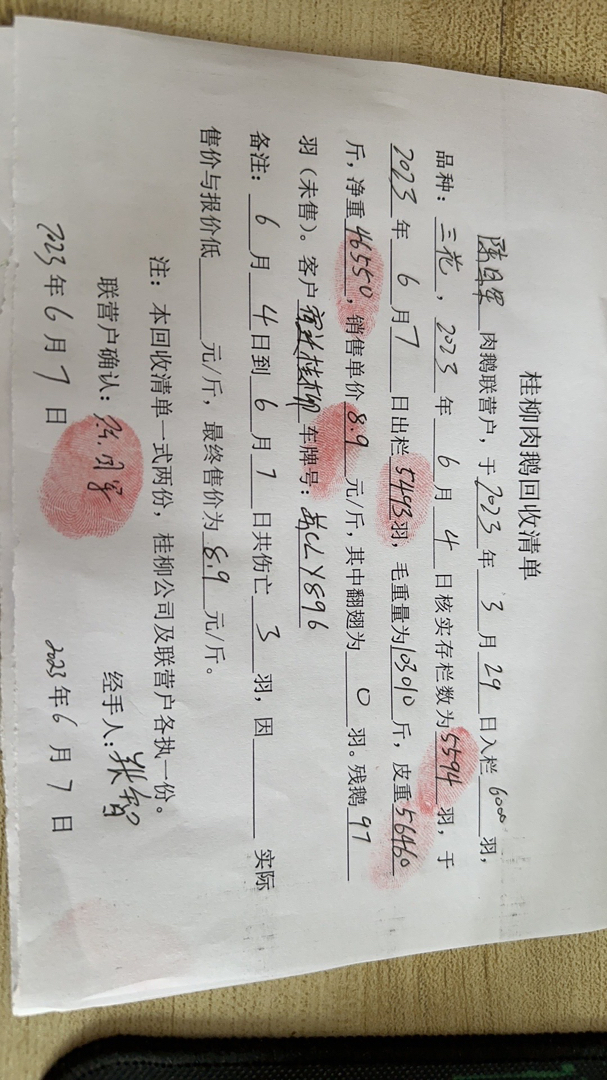 桂柳肉鹅回收清单
陈自军 肉鹅联营户，于 2023 年 3 月 29 日入栏 6000 羽，
品种：三花，2023 年 6 月 4 日核实存栏数为 5594 羽，于
2023 年 6 月 7 日出栏 5493 羽，毛重量为 103010 斤，皮重 56460
斤，净重 46550，销售单价 8.9 元/斤，其中翻翅为 0 羽。残鹅 97
羽（未售）。客户 桂柳 车牌号：苏CLY896
备注：6 月 4 日到 6 月 7 日共伤亡 3 羽，因 实际
售价与报价低 元/斤，最终售价为 8.9 元/斤。
注：本回收清单一式两份，桂柳公司及联营户各执一份。
联营户确认： 经手人：张智
2023 年 6 月 7 日 2023 年 6 月 7 日